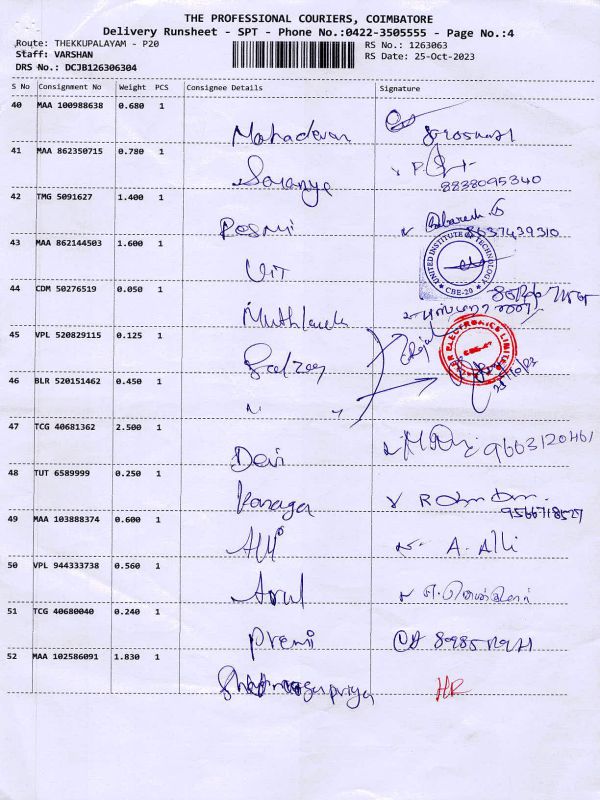 THE PROFESSIONAL COURIERS, COIMBATORE
Delivery Runsheet - SPT - Phone No.:0422-3505555 - Page No.:4
Route: THEKKUPALAYAM - P20
RS No.: 1263063
Staff: VARSHAN
RS Date: 25-Oct-2023
DRS No.: DCJB126306304
S No Consignment No Weight PCS Consignee Details Signature
40 MAA 100988638 0.680 1
Mahadevan
41 MAA 862350715 0.780 1
Saranya
8838095340
42 TMG 5091627 1.400 1
8637439310
43 MAA 862144503 1.600 1
UIT
UNITED INSTITUTE OF TECHNOLOGY
CBE-20
44 CDM 50276519 0.050 1
45 VPL 520829115 0.125 1
ELECTRONICS LIMITED
46 BLR 520151462 0.450 1
47 TCG 40681362 2.500 1
Devi
9663120461
48 TUT 6589999 0.250 1
Kanaga
9566718527
49 MAA 103888374 0.600 1
Alli A. Alli
50 VPL 944333738 0.560 1
Arul
51 TCG 40680040 0.240 1
Premi
52 MAA 102586091 1.830 1
HR